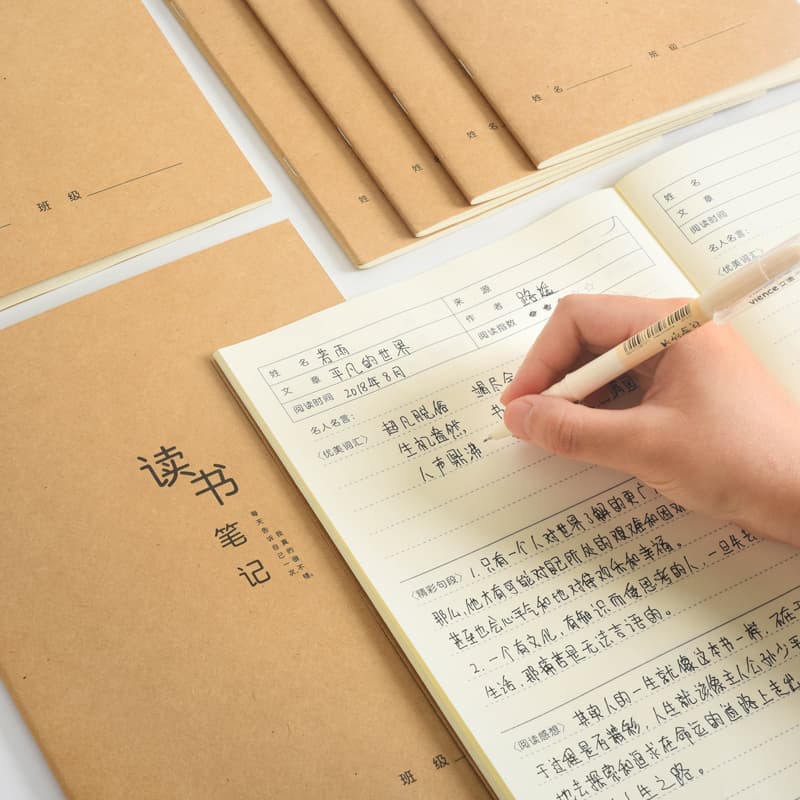 班 级
姓
姓
姓 名
姓 名
班 级
读书
笔记
每天告诉自己一次
我真的很不错。
班 级
姓 名 若雨
来 源
文 章 平凡的世界
作 者 路遥
阅读时间 2018年8月
阅读指数
名人名言:
〈优美词汇〉 超凡脱俗
生机盎然,
人声鼎沸
〈精彩句段〉 1.只有一个人对世界了解的更广
那么,他才有可能对自己所处的艰难和困
甚至也会心平气和地对待欢乐和幸福。
2.一个有文化,有知识而使思考的人,一旦失去
生活 那痛苦是无法言语的。
〈阅读感想〉 其实人的一生就像这本书一样,不在于
于过程是否精彩,人生就该像主人公孙少平
地去探索和追求在命运的道路上走出
人生之路。
姓 名
文 章
阅读时间
名人名言:
〈优美词汇〉
vience